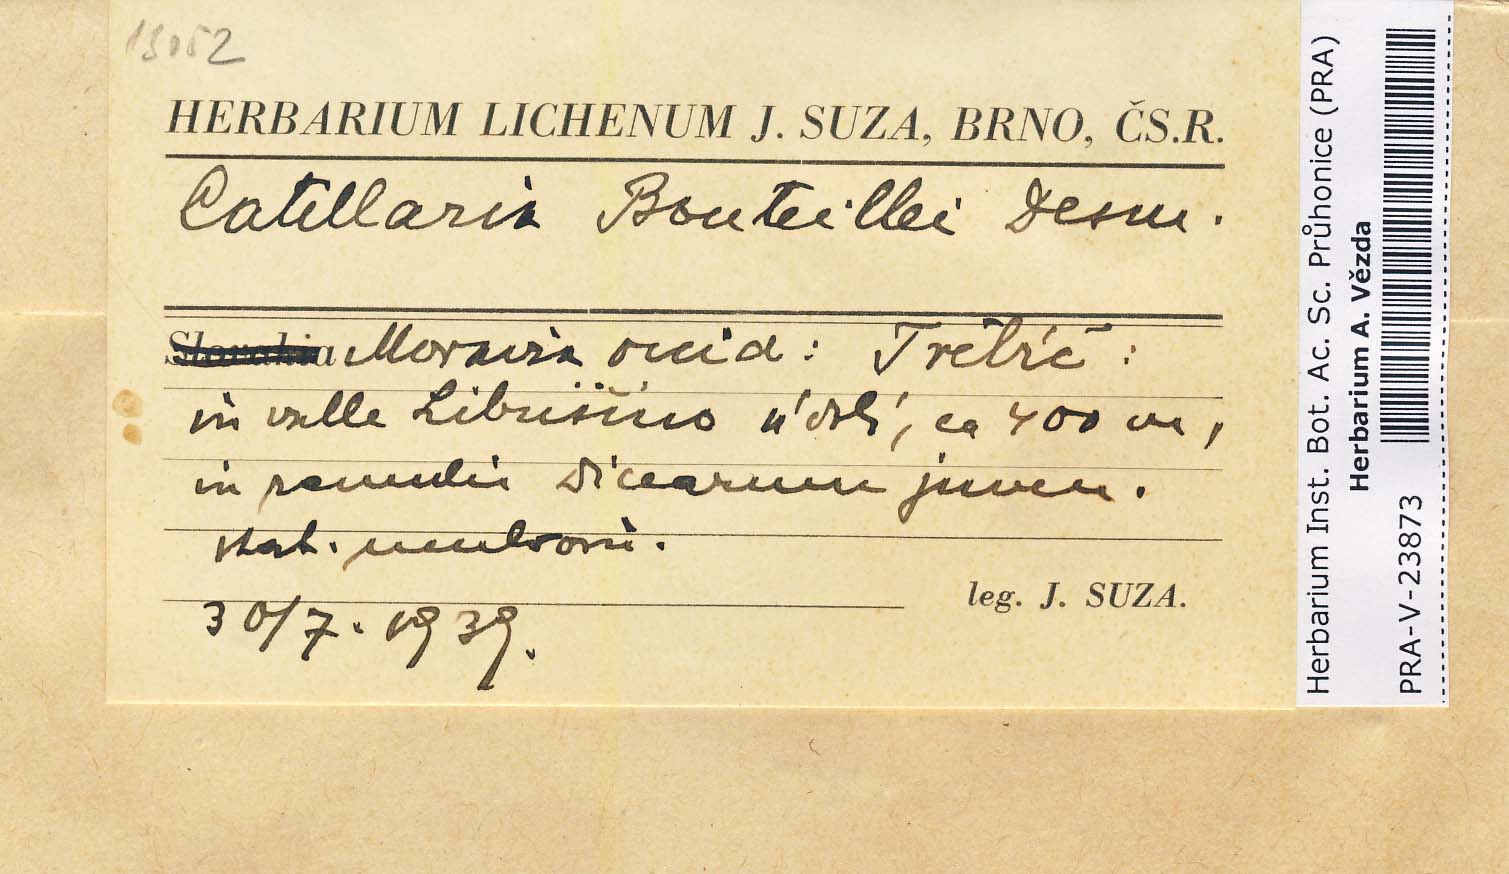 15052
HERBARIUM LICHENUM J. SUZA, BRNO, ČS.R.
Catillaria Bouteillei Desm.
Slovakia Moravia occid: Třebíč:
in valle Libušino údolí, ca 400 m,
in ramulis Picearum juven.
stat. umbrosis.
leg. J. SUZA.
30/7. 1939.
Herbarium Inst. Bot. Ac. Sc. Průhonice (PRA)
Herbarium A. Vězda
PRA-V-23873